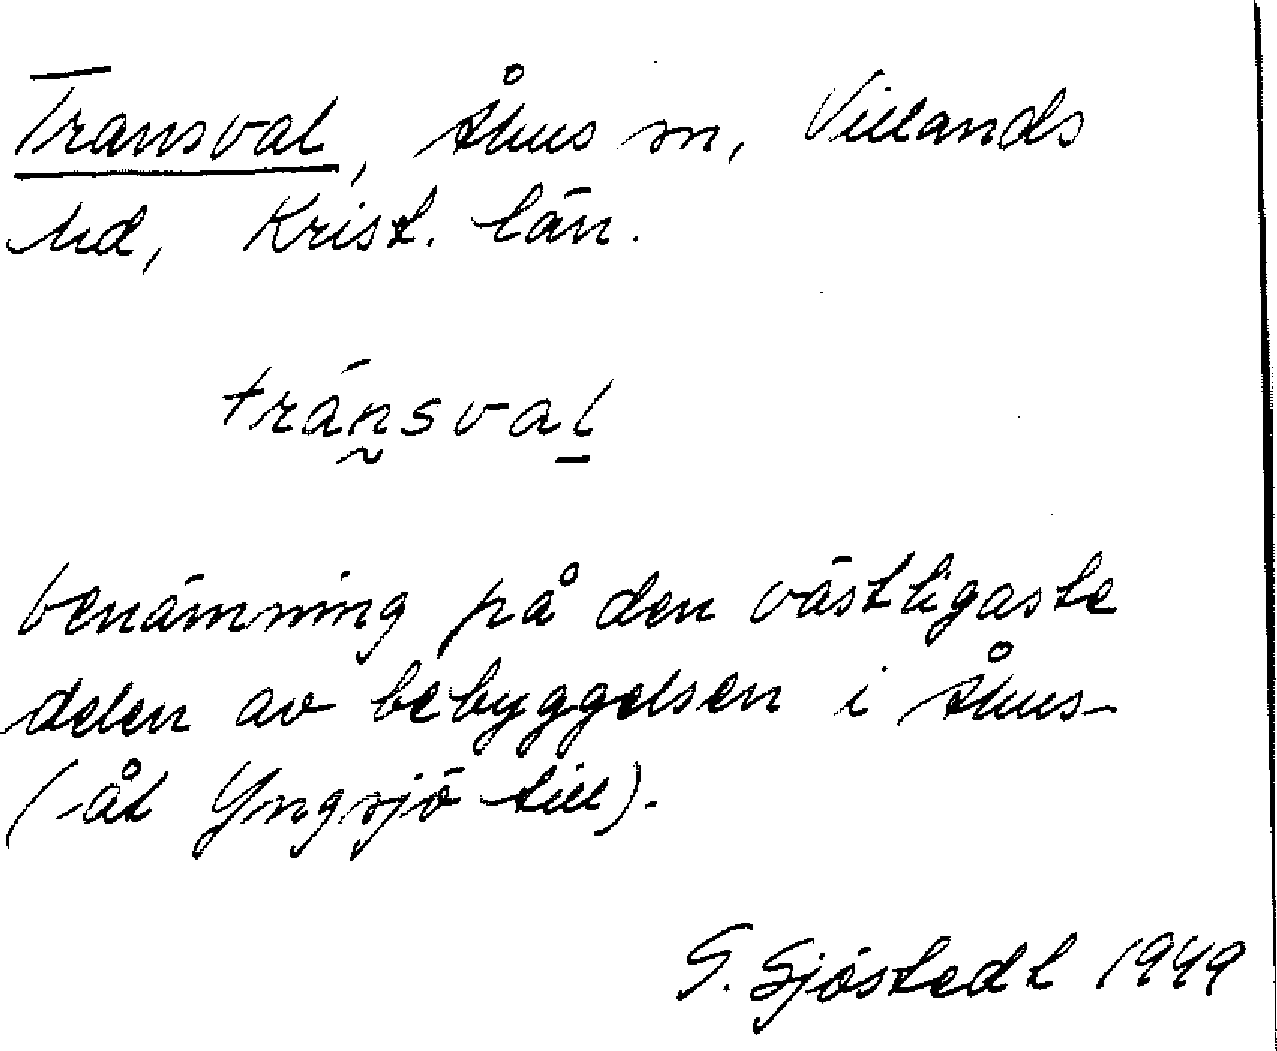 Transval, Åhus sn, Villands
hd, Krist. län.
tránsval
benämning på den västligaste
delen av bebyggelsen i Åhus
(åt Yngsjö till).
G. Sjöstedt 1949